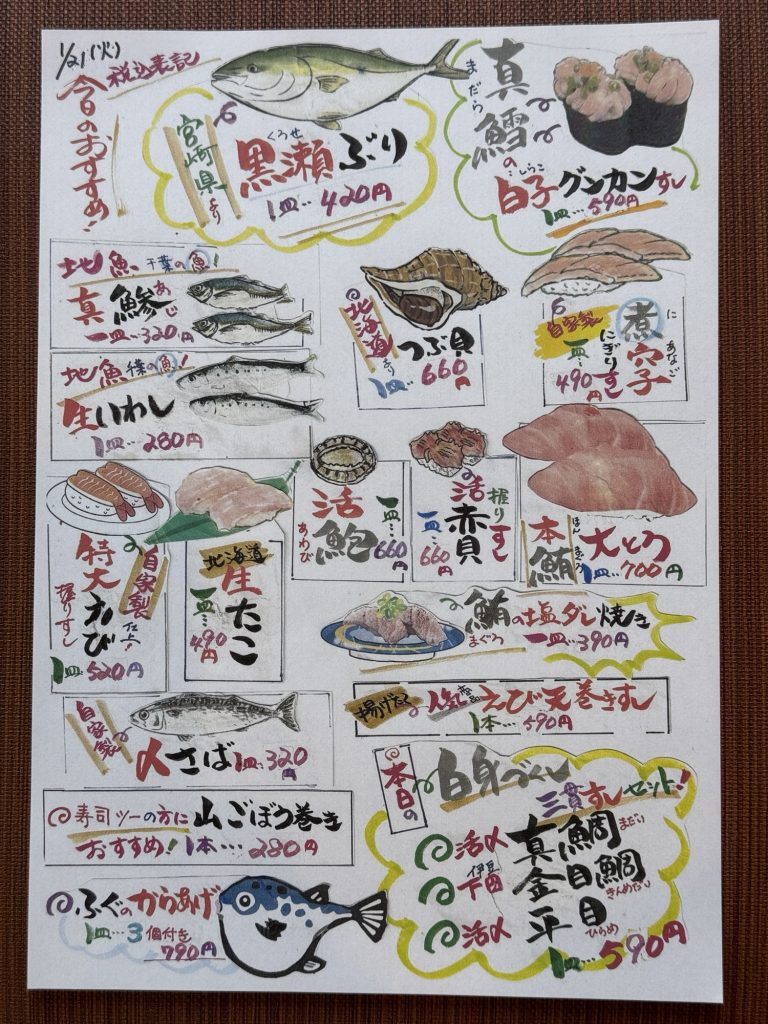 1/21(火)
今日のおすすめ!
税込表記
宮崎県より
くろせ
黒瀬ぶり
1皿…420円
まだら
真鱈の
しらこ
白子グンカンすし
1皿…590円
地魚 千葉の魚!
真鯵
あじ
一皿…320円
地魚 千葉の魚!
生いわし
1皿…280円
北海道より
つぶ貝
1皿…660円
自家製
煮穴子
に あなご
にぎりすし
一皿…490円
特大えび
握りすし
自家製
仕上!
1皿520円
北海道
生たこ
一皿…490円
活鮑
あわび
一皿…660円
活赤貝
握りすし
一皿…660円
本鮪
ほんまぐろ
大とろ
1皿…700円
鮪の塩ダレ焼き
まぐろ
一皿…390円
自家製
〆さば 1皿…320円
揚げたて 人気商品 えび天巻きすし
1本…590円
寿司ツーの方に 山ごぼう巻き
おすすめ! 1本…280円
ふぐのからあげ
1皿…3個付き
790円
本日の
白身づくし
三貫すしセット!
活〆 真鯛 まだい
伊豆
下田 金目鯛 きんめだい
活〆 平目 ひらめ
1皿…590円